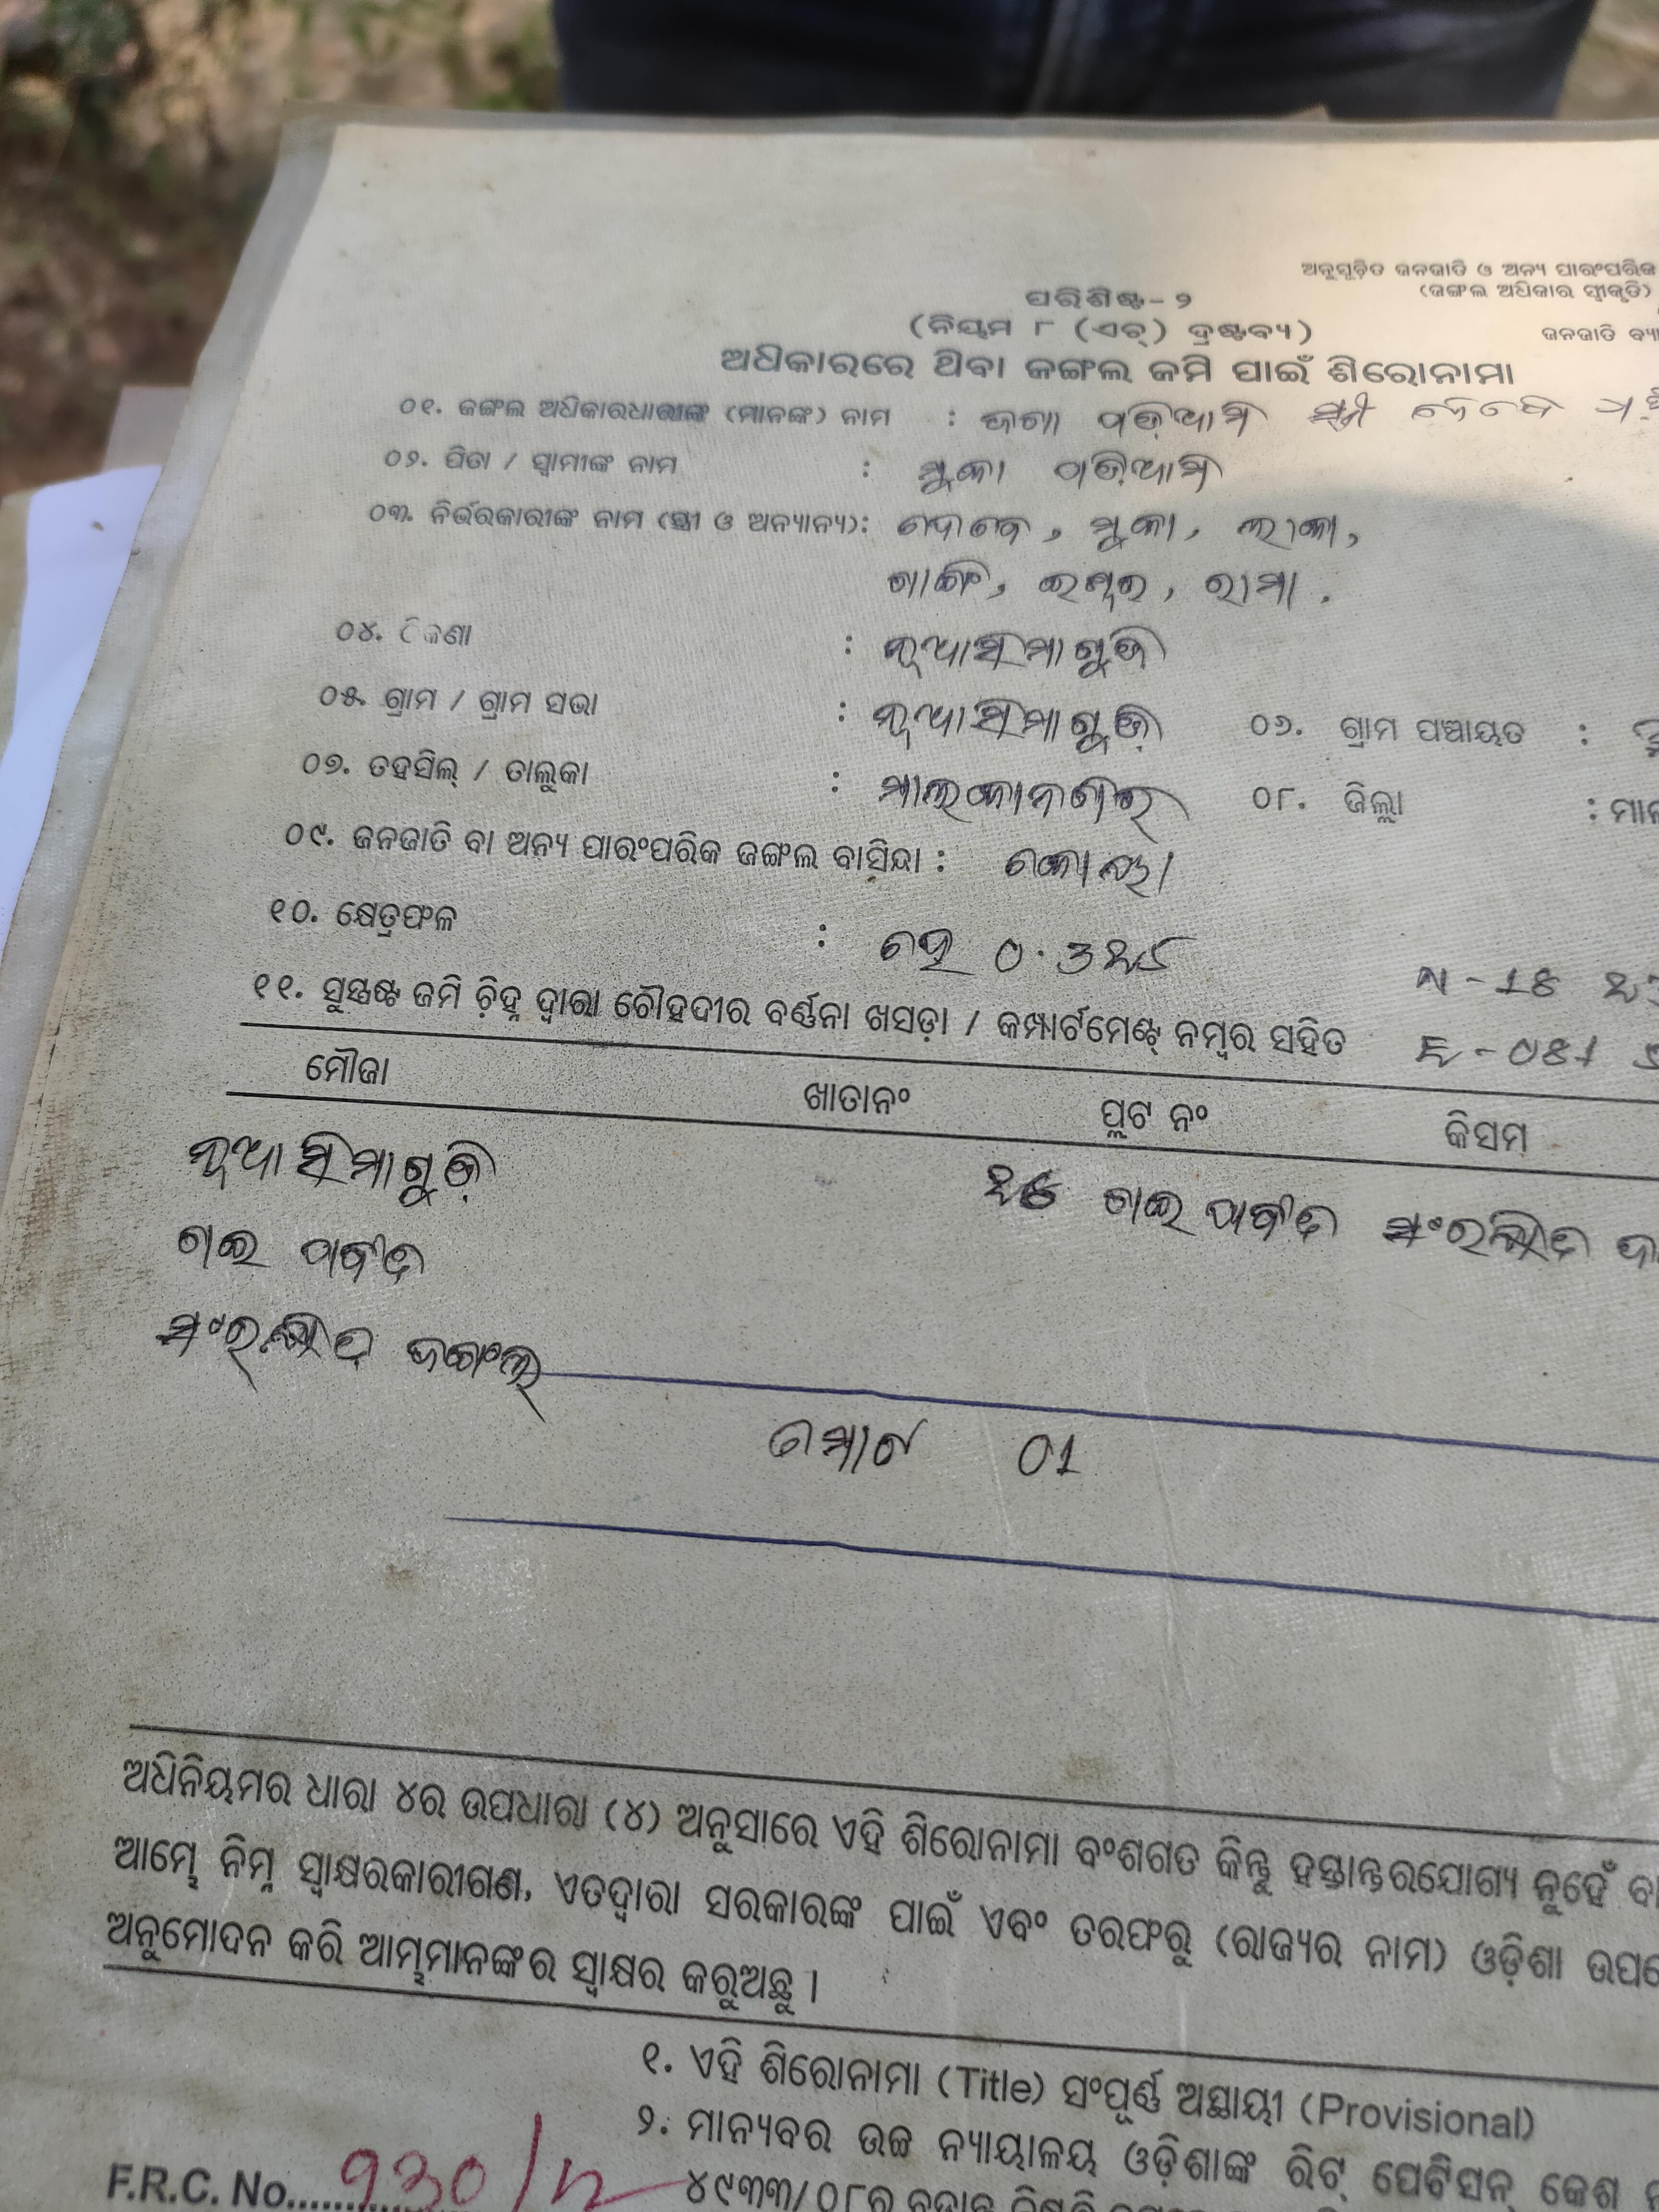 ଅନୁସୂଚିତ ଜନଜାତି ଓ ଅନ୍ୟ ପାରଂପରିକ
(ଜଙ୍ଗଲ ଅଧିକାର ସ୍ୱୀକୃତି)
ପରିଶିଷ୍ଟ- ୨
ଜନଜାତି
(ନିୟମ ୮ (ଏଚ୍) ଦ୍ରଷ୍ଟବ୍ୟ)
ଅଧିକାରରେ ଥିବା ଜଙ୍ଗଲ ଜମି ପାଇଁ ଶିରୋନାମା
୦୧. ଜଙ୍ଗଲ ଅଧିକାରଧାରୀଙ୍କ (ମାନଙ୍କ) ନାମ : ଜଗା ପଡ଼ିଆମି
୦୨. ପିତା / ସ୍ୱାମୀଙ୍କ ନାମ : ମୁକା ପଡ଼ିଆମି
୦୩. ନିର୍ଭରକାରୀଙ୍କ ନାମ (ସ୍ତ୍ରୀ ଓ ଅନ୍ୟାନ୍ୟ): ଦେବେ, ମୁକା, ଲାକା,
ଗାଙ୍ଗି, ରାମା.
୦୪. ଠିକଣା : ନୂଆସିମାଗୁଡ଼ି
୦୫. ଗ୍ରାମ / ଗ୍ରାମ ସଭା : ନୂଆସିମାଗୁଡ଼ି ୦୬. ଗ୍ରାମ ପଞ୍ଚାୟତ :
୦୭. ତହସିଲ୍ / ତାଲୁକା : ମାଲକାନଗିରି ୦୮. ଜିଲ୍ଲା :
୦୯. ଜନଜାତି ବା ଅନ୍ୟ ପାରଂପରିକ ଜଙ୍ଗଲ ବାସିନ୍ଦା : କୋୟା
୧୦. କ୍ଷେତ୍ରଫଳ : ହେ
୧୧. ସୁସ୍ପଷ୍ଟ ଜମି ଚିହ୍ନ ଦ୍ୱାରା ଚୌହଦୀର ବର୍ଣ୍ଣନା ଖସଡ଼ା / କମ୍ପାର୍ଟମେଣ୍ଟ୍ ନମ୍ବର ସହିତ
ମୌଜା ଖାତାନଂ ପ୍ଲଟ ନଂ କିସମ୍
ନୂଆସିମାଗୁଡ଼ି
ସଂରକ୍ଷିତ
ସଂରକ୍ଷିତ ଜଙ୍ଗଲ
ମୋଟ 01
ଅଧିନିୟମର ଧାରା ୪ର ଉପଧାରା (୪) ଅନୁସାରେ ଏହି ଶିରୋନାମା ବଂଶଗତ କିନ୍ତୁ ହସ୍ତାନ୍ତରଯୋଗ୍ୟ ନୁହେଁ
ଆମ୍ଭେ ନିମ୍ନ ସ୍ୱାକ୍ଷରକାରୀଗଣ, ଏତଦ୍ୱାରା ସରକାରଙ୍କ ପାଇଁ ଏବଂ ତରଫରୁ (ରାଜ୍ୟର ନାମ) ଓଡ଼ିଶା
ଅନୁମୋଦନ କରି ଆମ୍ଭମାନଙ୍କର ସ୍ୱାକ୍ଷର କରୁଅଛୁ ।
୧. ଏହି ଶିରୋନାମା (Title) ସଂପୂର୍ଣ୍ଣ ଅସ୍ଥାୟୀ (Provisional)
୨. ମାନ୍ୟବର ଉଚ୍ଚ ନ୍ୟାୟାଳୟ ଓଡ଼ିଶାଙ୍କ ରିଟ୍ ପେଟିସନ୍ କେଶ
୪୯୩୩/୦୮ର
F.R.C. No.